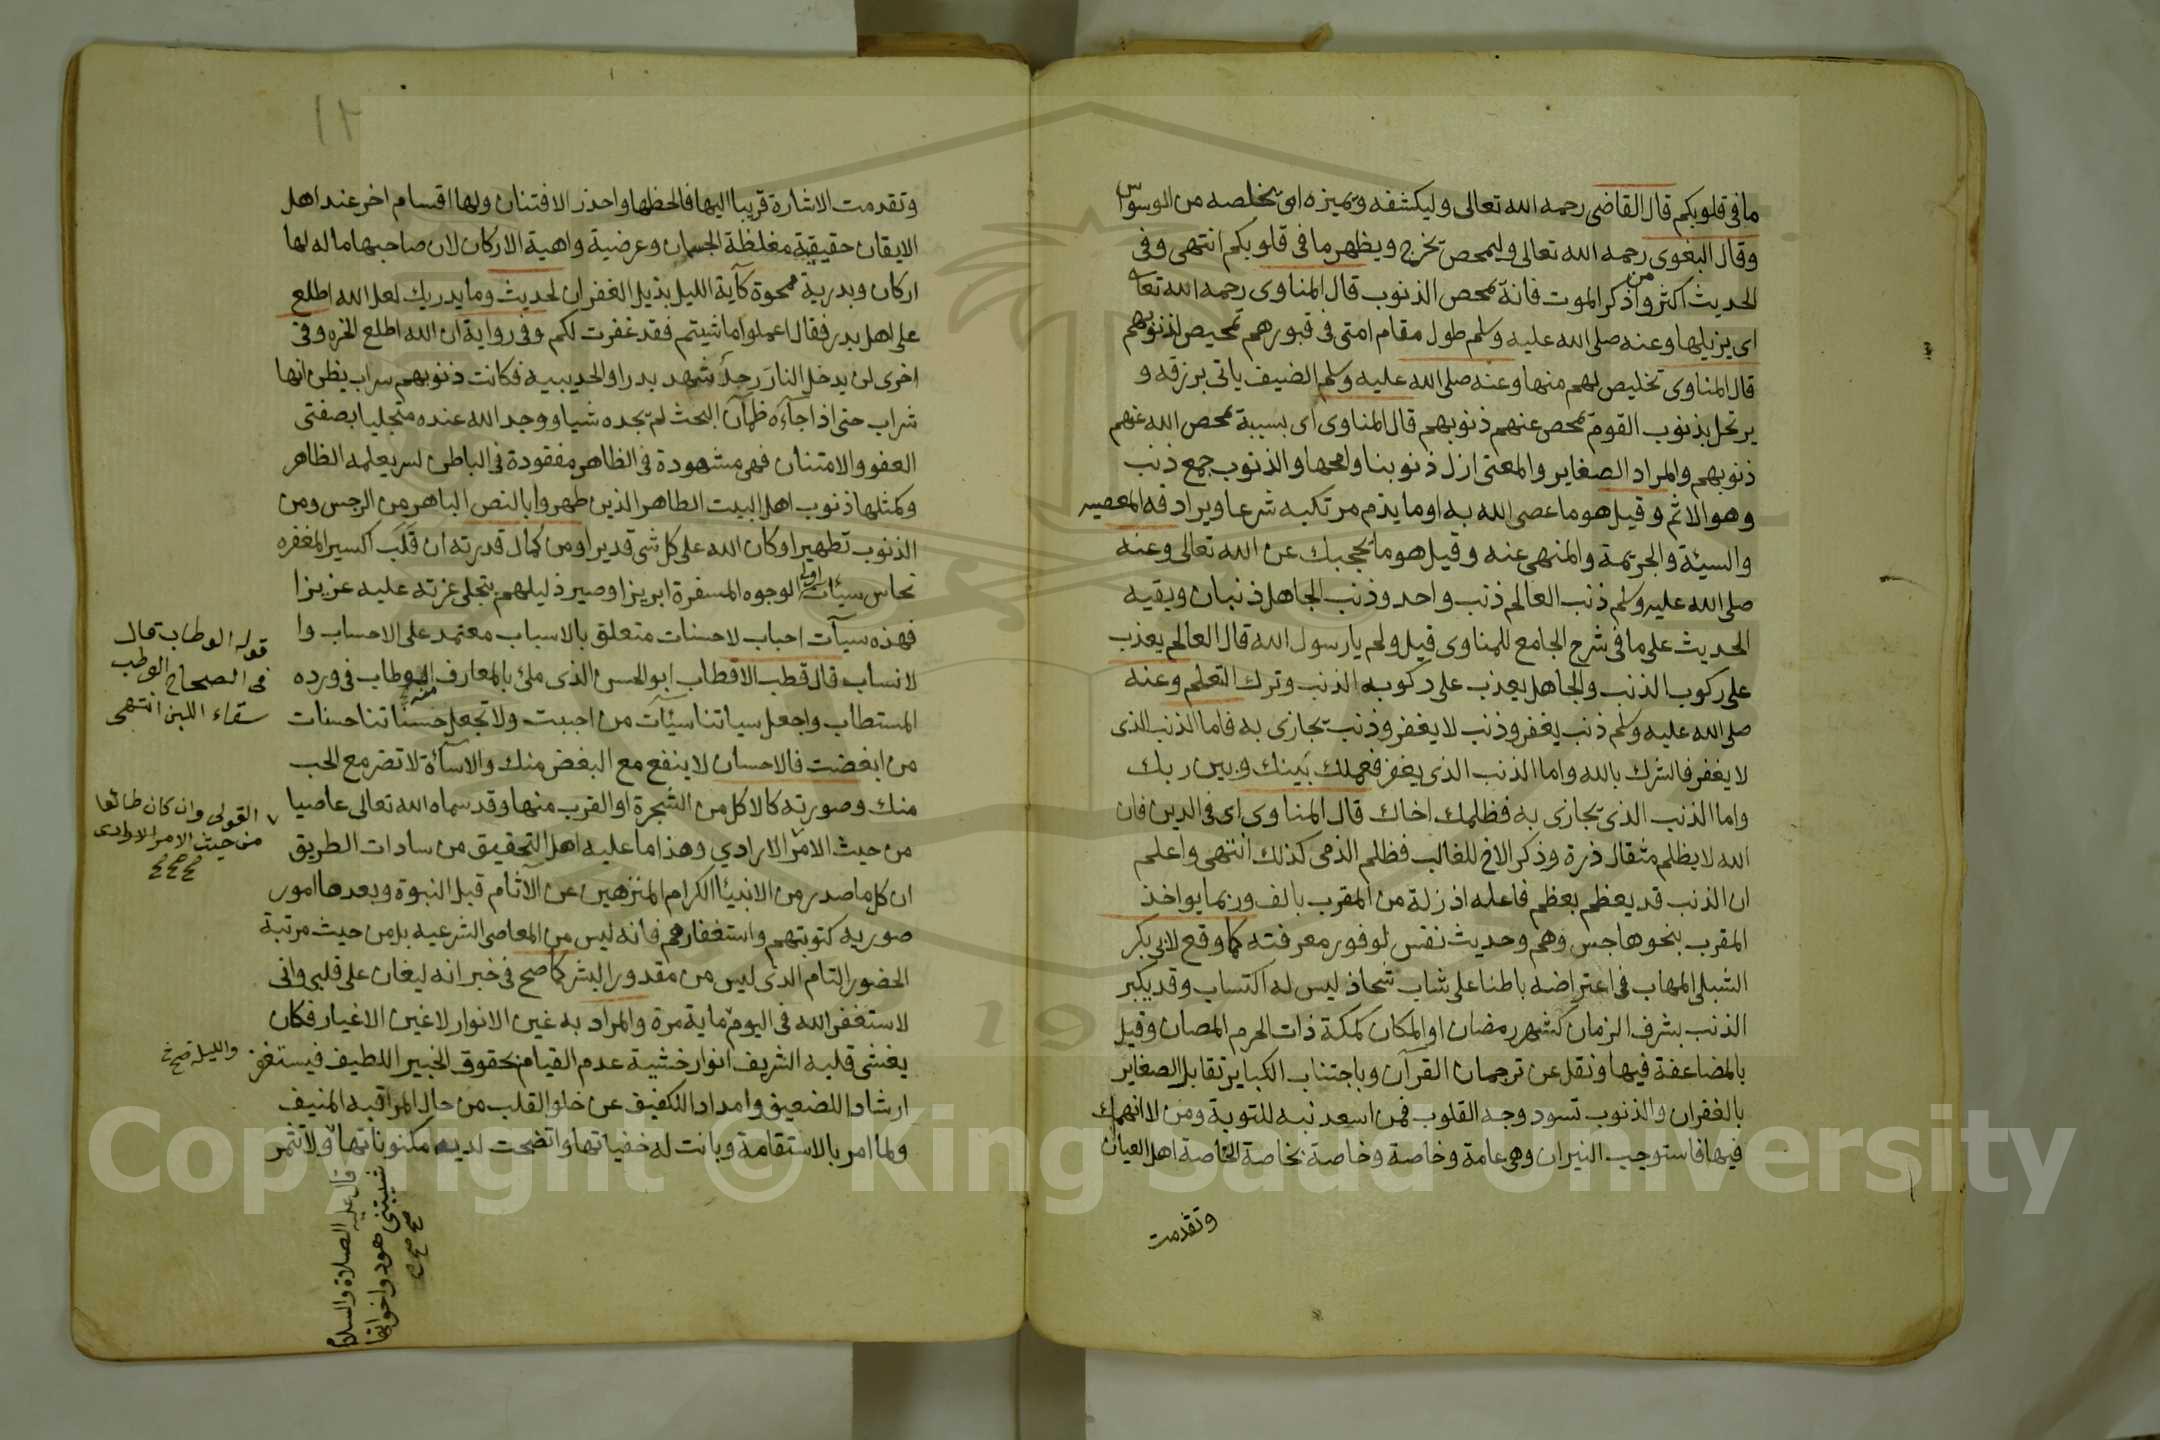 ما في قلوبكم قال القاضي رحمه الله تعالى وليكشفه ويميزه اي يخلصه من الوسوس
وقال البغوي رحمه الله تعالى وليمحص يخرج ويظهر ما في قلوبكم انتهى وفي
الحديث اكثروا من ذكر الموت فانه يمحص الذنوب قال المناوي رحمه الله تعا
اي يزيلها وعنه صلى الله عليه وسلم طول مقام امتي في قبورهم تمحيص لذنوبهم
قال المناوي تخليص لهم منها وعنه صلى الله عليه وسلم الضيف ياتي برزقه و
يرتحل بذنوب القوم يمحص عنهم ذنوبهم قال المناوي اي بسببه يمحص الله عنهم
ذنوبهم والمراد الصغاير والمعنى ازل ذنوبنا وامحها والذنوب جمع ذنب
وهو الاثم وقيل هو ما عصي الله به او ما يذم مرتكبه شرعا ويرادفه المعصيه
والسيئة والجريمة والمنهي عنه وقيل هو ما يحجبك عن الله تعالى وعنه
صلى الله عليه وسلم ذنب العالم ذنب واحد وذنب الجاهل ذنبان وبقيه
الحديث على ما في شرح الجامع للمناوي قيل ولم يا رسول الله قال العالم يعذب
على ركوب الذنب والجاهل يعذب على ركوبه الذنب وترك التعلم وعنه
صلى الله عليه وسلم ذنب يغفر وذنب لا يغفر وذنب يجازى به فاما الذنب الذي
لا يغفر فالشرك بالله واما الذنب الذي يغفر فعملك بينك وبين ربك
واما الذنب الذي يجازى به فظلمك اخاك قال المناوي اي في الدين فان
الله لا يظلم مثقال ذرة وذكر الاخ للغالب فظلم الذمي كذلك انتهى واعلم
ان الذنب قد يعظم بعظم فاعله اذ زلة من المقرب بالف وربما يواخذ
المقرب بنحو هاجس وهم وحديث نفس لوفور معرفته كما وقع لابي بكر
الشبلي المهاب في اعتراضه باطنا على شاب شحاذ ليس له اكتساب وقد يكبر
الذنب بشرف الزمان كشهر رمضان او المكان كمكة ذات الحرم المصان وقيل
بالمضاعفة فيها ونقل عن ترجمان القرآن وباجتناب الكباير تقابل الصغاير
بالغفران والذنوب تسود وجه القلوب فمن اسعد نبه للتوبة ومن لا انهمك
فيها فاستوجب النيران وهي عامة وخاصة وخاصة بخاصة الخاصة اهل العيان
وتقدمت
١٢
وتقدمت الاشارة قريبا اليها فالحظها واحذر الافتنان ولها اقسام اخر عند اهل
الايقان حقيقية مغلظة الجسمان وعرضية واهية الاركان لان صاحبها ما له لها
اركان وبدرية ممحوة كآية الليل بذيل الغفران لحديث وما يدريك لعل الله اطلع
على اهل بدر فقال اعملوا ما شيتم فقد غفرت لكم وفي رواية ان الله اطلع الخره وفي
اخرى لن يدخل النار رجل شهد بدرا والحديبيه فكانت ذنوبهم سراب يظن انها
شراب حتى اذا جآءه ظمآن البحث لم يجده شيا ووجد الله عنده متجليا بصفتي
العفو والامتنان فهي مشهودة في الظاهر مفقودة في الباطن لسر يعلمه الظاهر
وكمثلها ذنوب اهل البيت الطاهر الذين طهروا بالنص الباهر من الرجس ومن
الذنوب تطهيرا وكان الله على كل شي قديرا ومن كمال قدرته ان قلب اكسير المغفره
نحاس سيئات اولي الوجوه المسفرة ابريزا وصير ذليلهم بتجلي عزته عليه عزيزا
فهذه سيآت احباب لا حسنات متعلق بالاسباب معتمد على الاحساب وا
لانساب قال قطب الاقطاب ابو الحسن الذي ملئ بالمعارف الوطاب في ورده
المستطاب واجعل سياتنا سيئآت من احببت ولا تجعل حسناتنا حسنات
من ابغضت فالاحسان لا ينفع مع البغض منك والاسآة لا تضر مع الحب
منك وصورته كالاكل من الشجرة او القرب منها وقد سماه الله تعالى عاصيا
من حيث الامر الارادي وهذا ما عليه اهل التحقيق من سادات الطريق
ان كل ما صدر من الانبيا الكرام المنزهين عن الاثام قبل النبوة وبعدها امور
صوريه كتوبتهم واستغفارهم فانه ليس من المعاصي الشرعيه بل من حيث مرتبة
الحضور التام الذي ليس من مقدور البشر كما صح في خبر انه ليغان على قلبي واني
لاستغفر الله في اليوم ماية مرة والمراد به غين الانوار لا غين الاغيار فكان
يغشى قلبه الشريف انوار خشية عدم القيام بحقوق الخبير اللطيف فيستغفر
ارشادا للضعيف وامدادا للكفيف عن خلو القلب من حال المراقبه المنيف
ولما امر بالاستقامة وبانت له خفياتها واتضحت لديه مكنوناتها ولا تثمر
قوله الوطاب قال
في الصحاح الوطب
سقاء اللبن انتهى
القولي وان كان طائعا
من حيث الامر الارادي
صح صح صح
والليلة صح
قال عليه الصلاة والسلام
شيبتني هود واخواتها
صح صح
Copyright © King Saud University